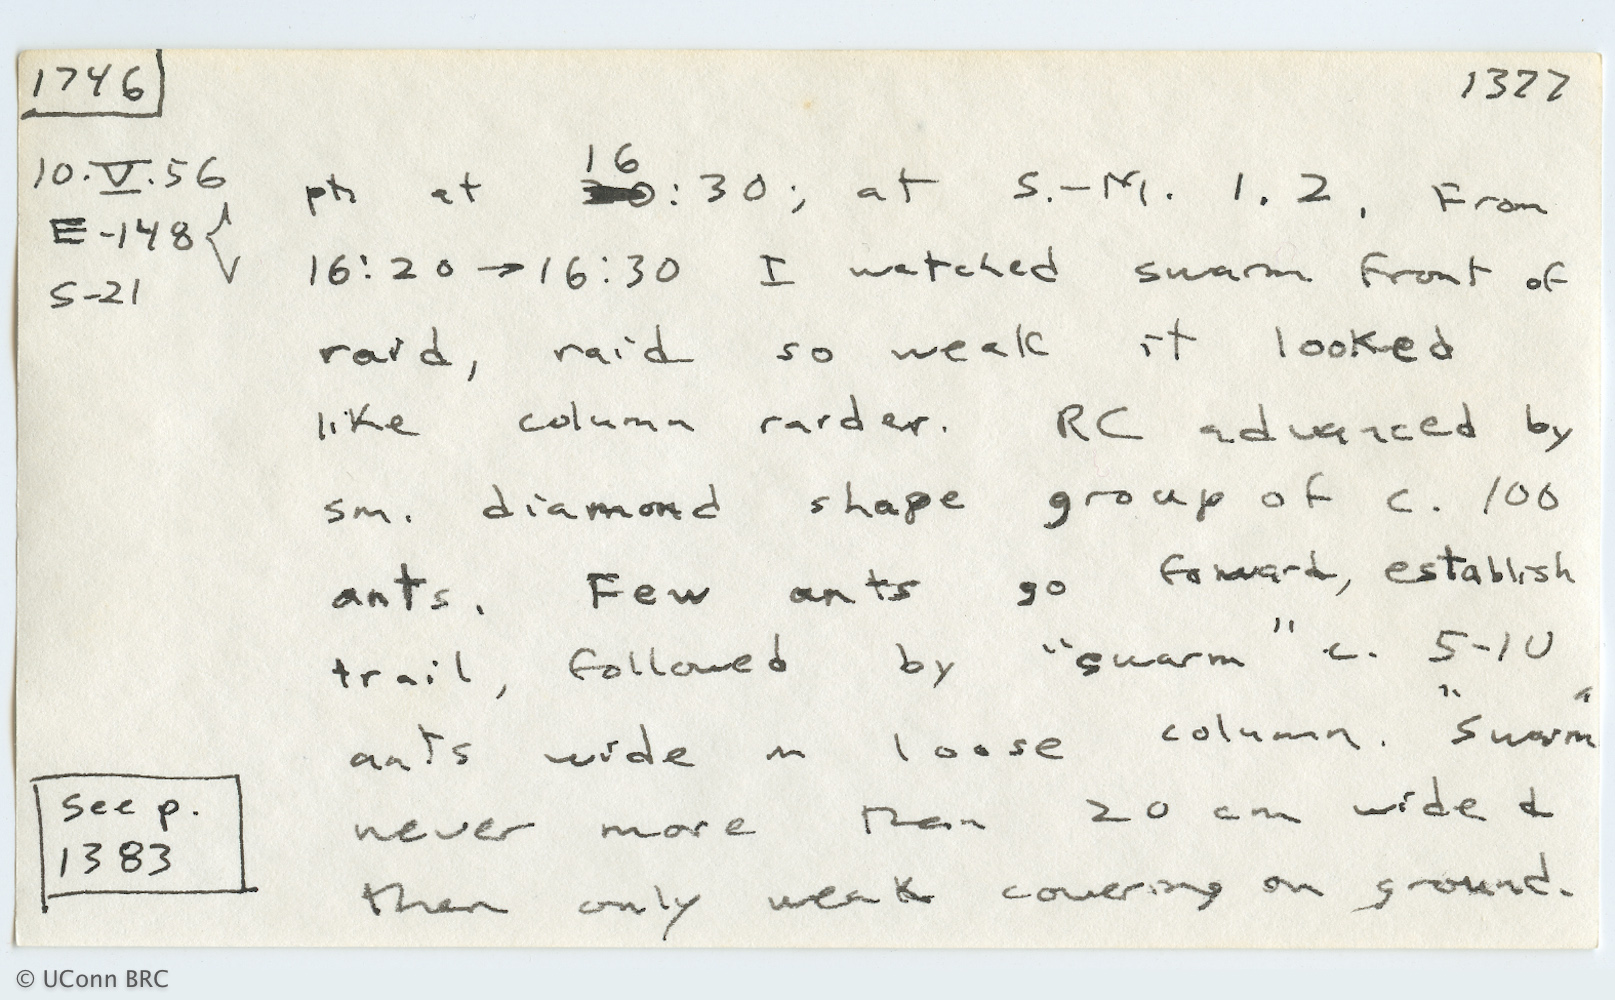 1746
1377
10.V.56
E-148
S-21
ph at 16:30; at S.-M. 1.2. From
16:20→16:30 I watched swarm front of
raid, raid so weak it looked
like column raider. RC advanced by
sm. diamond shape group of c. 100
ants. Few ants go forward, establish
trail, followed by "swarm" c. 5-10
ants wide in loose column. "Swarm"
never more than 20 cm wide &
then only weak covering on ground.
see p.
1383
© UConn BRC